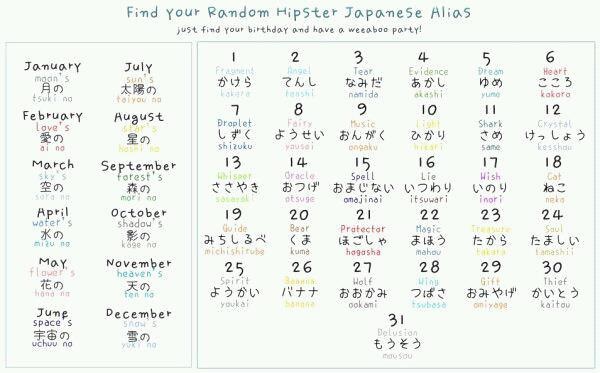 Find Your Random Hipster Japanese Alias
just find your birthday and have a weeaboo party!
January
moon's
月の
tsuki no
July
sun's
太陽の
taiyou no
February
love's
愛の
ai no
August
star's
星の
hoshi no
March
sky's
空の
sora no
September
forest's
森の
mori no
April
water's
水の
mizu no
October
shadow's
影の
kage no
May
flower's
花の
hana no
November
heaven's
天の
ten no
June
space's
宇宙の
uchuu no
December
snow's
雪の
yuki no
1
Fragment
かけら
kakera
2
Angel
てんし
tenshi
3
Tear
なみだ
namida
4
Evidence
あかし
akashi
5
Dream
ゆめ
yume
6
Heart
こころ
kokoro
7
Droplet
しずく
shizuku
8
Fairy
ようせい
yousei
9
Music
おんがく
ongaku
10
Light
ひかり
hikari
11
Shark
さめ
same
12
Crystal
けっしょう
kesshou
13
Whisper
ささやき
sasayaki
14
Oracle
おつげ
otsuge
15
Spell
おまじない
omajinai
16
Lie
いつわり
itsuwari
17
Wish
いのり
inori
18
Cat
ねこ
neko
19
Guide
みちしるべ
michishirube
20
Bear
くま
kuma
21
Protector
ほごしゃ
hogosha
22
Magic
まほう
mahou
23
Treasure
たから
takara
24
Soul
たましい
tamashii
25
Spirit
ようかい
youkai
26
Banana
バナナ
banana
27
Wolf
おおかみ
ookami
28
Wing
つばさ
tsubasa
29
Gift
おみやげ
omiyage
30
Thief
かいとう
kaitou
31
Delusion
もうそう
mousou